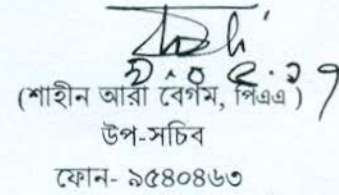 (শাহীন আরা বেগম, পিএএ)
উপ-সচিব
ফোন- ৯৫৪০৪৬৩